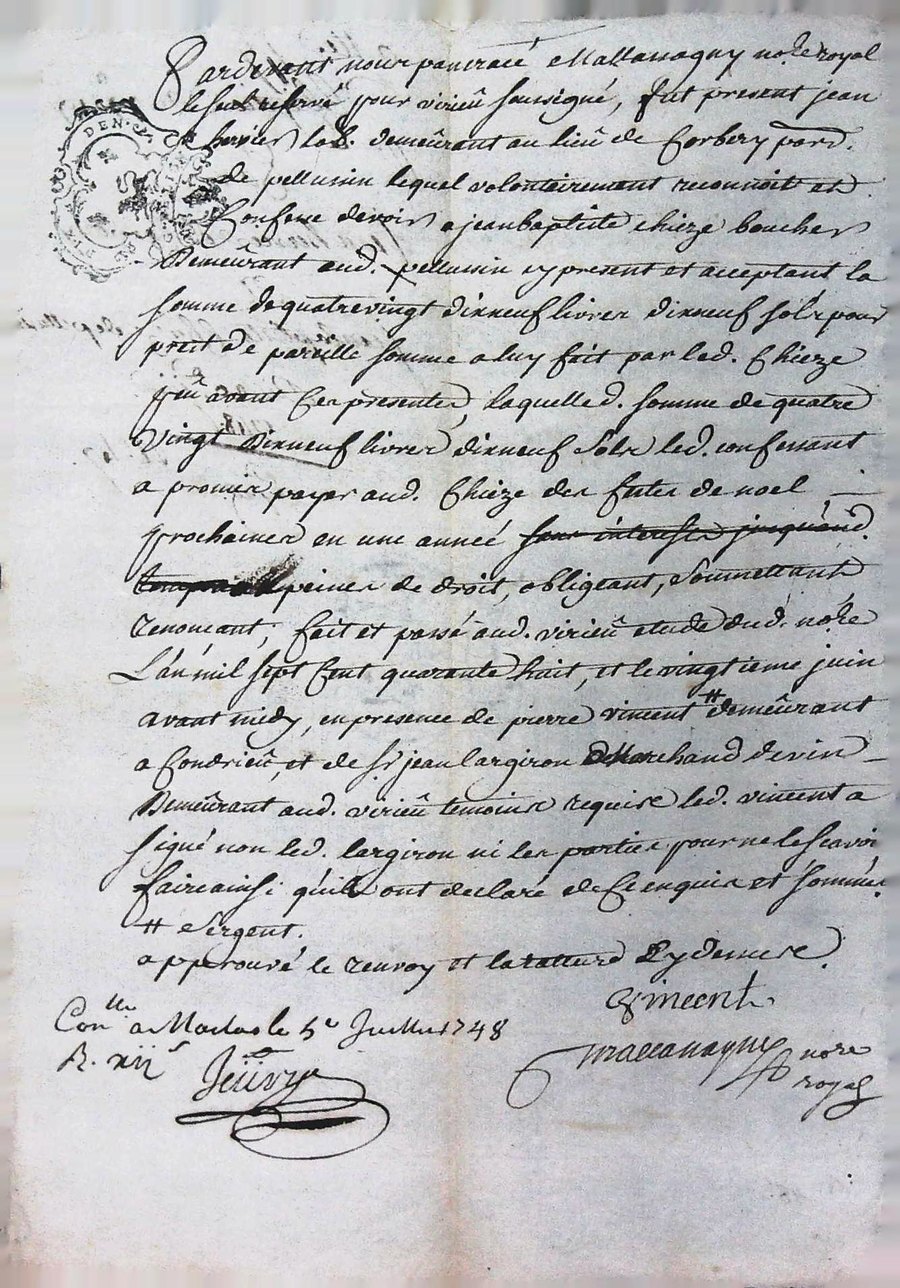 Pardevant nous pancrace Mallanagny no.re royal
le seul reservé pour virieû sousigné, fut present jean
hervier lab. demeûrant au lieû de Corbery parr.
de pellusin lequel volontairement reconnoit et
Confesse devoir a jean baptiste chieze boucher
Demeûrant aud. pellussin cy present et acceptant la
somme de quatre vingt dixneuf livres dixneuf sols pour
prest de pareille somme a luy fait par led. Chieze
avant Ces presentes, laquelled. somme de quatre
vingt dixneuf livres dixneuf sols led. confessant
a promis payer aud. Chieze des fetes de noel
prochaines en une année sans interests jusqu'aud.
peines de droit, obligeant, soumettant
renoncant, fait et passé aud. virieû etude dud. no.re
L'an mil sept Cent quarante huit, et le vingtieme juin
avant midy, en presence de pierre vincent # demeûrant
a Condrieû, et de sr jean largiron Marchand de vin
Demeûrant aud. virieû temoins requis led. vincent a
signé non led. largiron ni les parties pour ne le scavoir
faire ainsi qu'ils ont declaré de ce enquis et sommés.
# sergent.
approuvé le renvoy et la rature cy dessus.
Vincent.
Con.lle a le 5e Juillet 1748
Mallanagny no.re
R. xii s
royal
DEN.